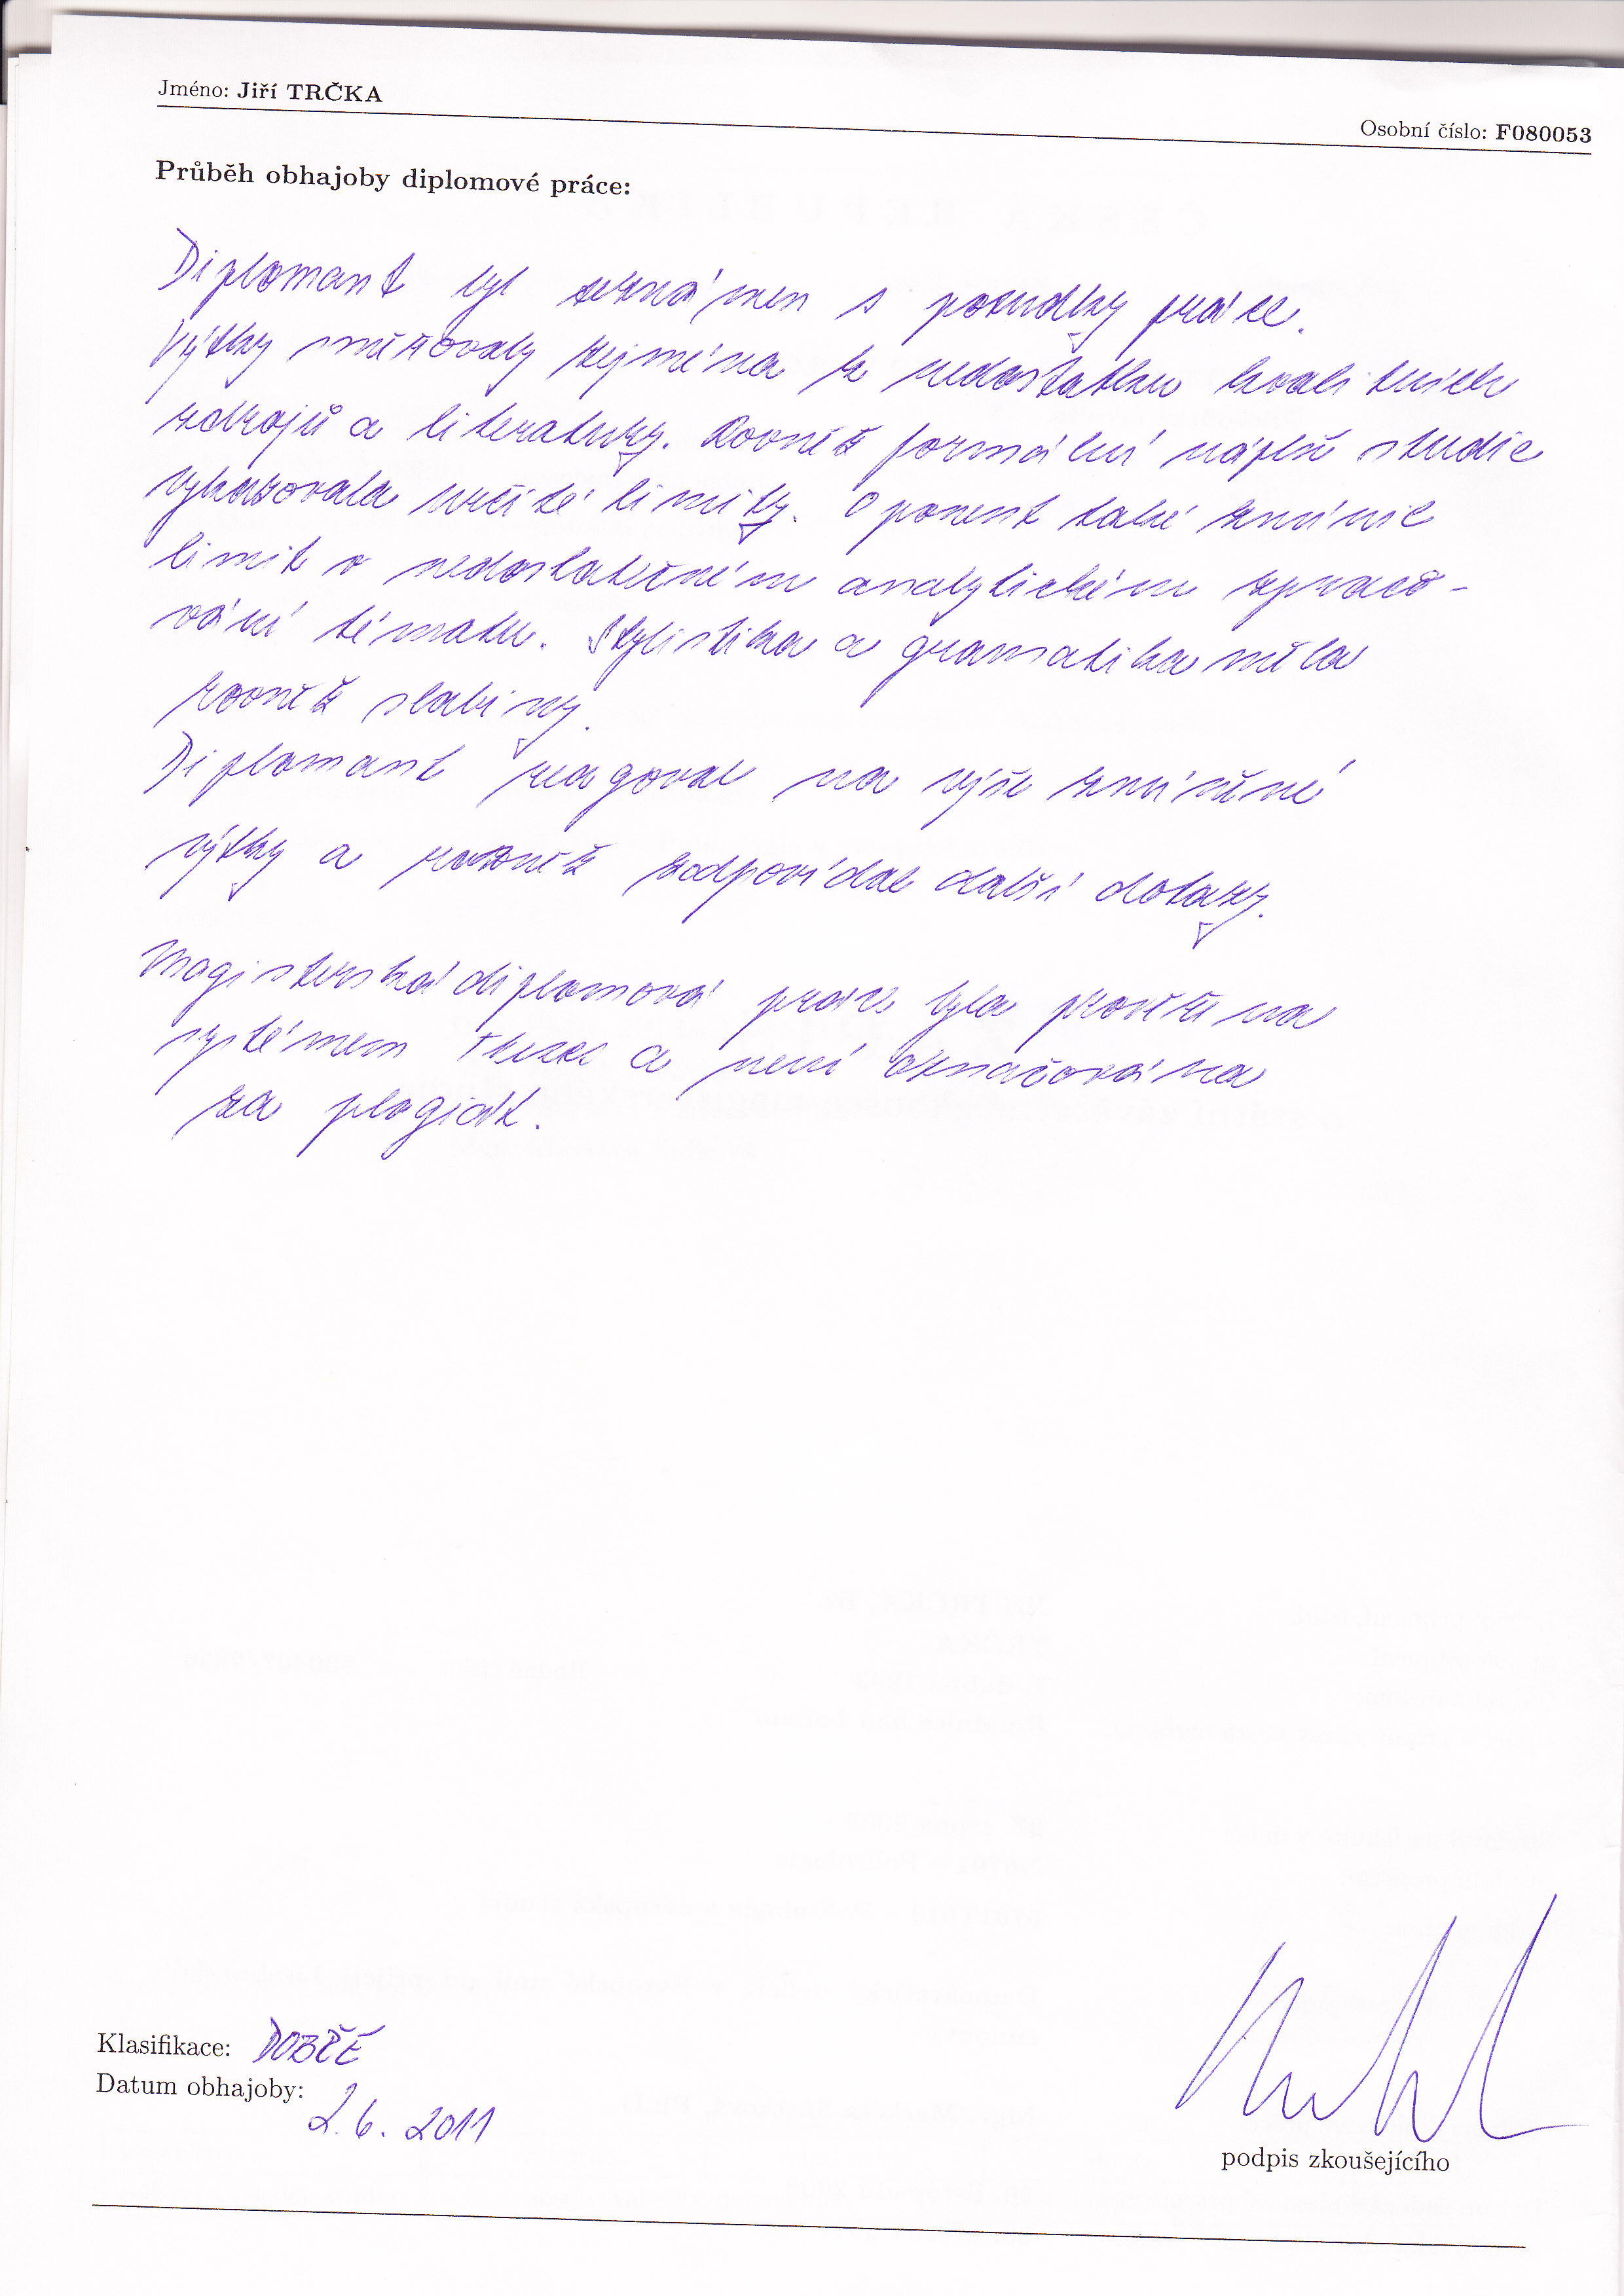 Jméno: Jiří TRČKA
Osobní číslo: F080053
Průběh obhajoby diplomové práce:
Diplomant byl seznámen s posudky práce.
Výtky směřovaly zejména k nedostatku kvalitních
zdrojů a literatury. Rovněž formální náplň studie
vykazovala určité limity. Oponent také zmínil
limit v nedostatečném analytickém zpraco-
vání tématu. Stylistika a gramatika měla
rovněž slabiny.
Diplomant reagoval na výše zmíněné
výtky a rovněž zodpovídal další dotazy.
Magisterská diplomová práce byla prověřena
systémem Theses a není označována
za plagiát.
Klasifikace: DOBŘE
Datum obhajoby:
2. 6. 2011
podpis zkoušejícího